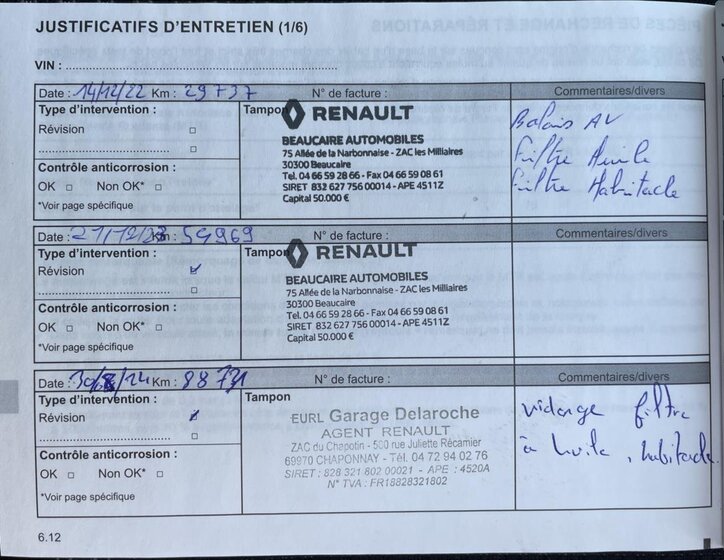 JUSTIFICATIFS D'ENTRETIEN (1/6)
VIN :
Date : 14/12/22 Km : 29737 N° de facture : Commentaires/divers
Type d'intervention :
Révision
Contrôle anticorrosion :
OK Non OK*
*Voir page spécifique
Tampon
RENAULT
BEAUCAIRE AUTOMOBILES
75 Allée de la Narbonnaise - ZAC les Milliaires
30300 Beaucaire
Tel. 04 66 59 28 66 - Fax 04 66 59 08 61
SIRET 832 627 756 00014 - APE 4511Z
Capital 50.000 €
Balais AV
Filtre Huile
Filtre Habitacle
Date : 21/12/23 Km : 54969 N° de facture : Commentaires/divers
Type d'intervention :
Révision
Contrôle anticorrosion :
OK Non OK*
*Voir page spécifique
Tampon
RENAULT
BEAUCAIRE AUTOMOBILES
75 Allée de la Narbonnaise - ZAC les Milliaires
30300 Beaucaire
Tel. 04 66 59 28 66 - Fax 04 66 59 08 61
SIRET 832 627 756 00014 - APE 4511Z
Capital 50.000 €
Date : 30/ /24 Km : 88731 N° de facture : Commentaires/divers
Type d'intervention :
Révision
Contrôle anticorrosion :
OK Non OK*
*Voir page spécifique
Tampon
EURL Garage Delaroche
AGENT RENAULT
ZAC du Chapotin - 500 rue Juliette Récamier
69970 CHAPONNAY - Tél. 04 72 94 02 76
SIRET : 828 321 802 00021 - APE : 4520A
N° TVA : FR18828321802
vidange filtre
à huile, habitacle
6.12